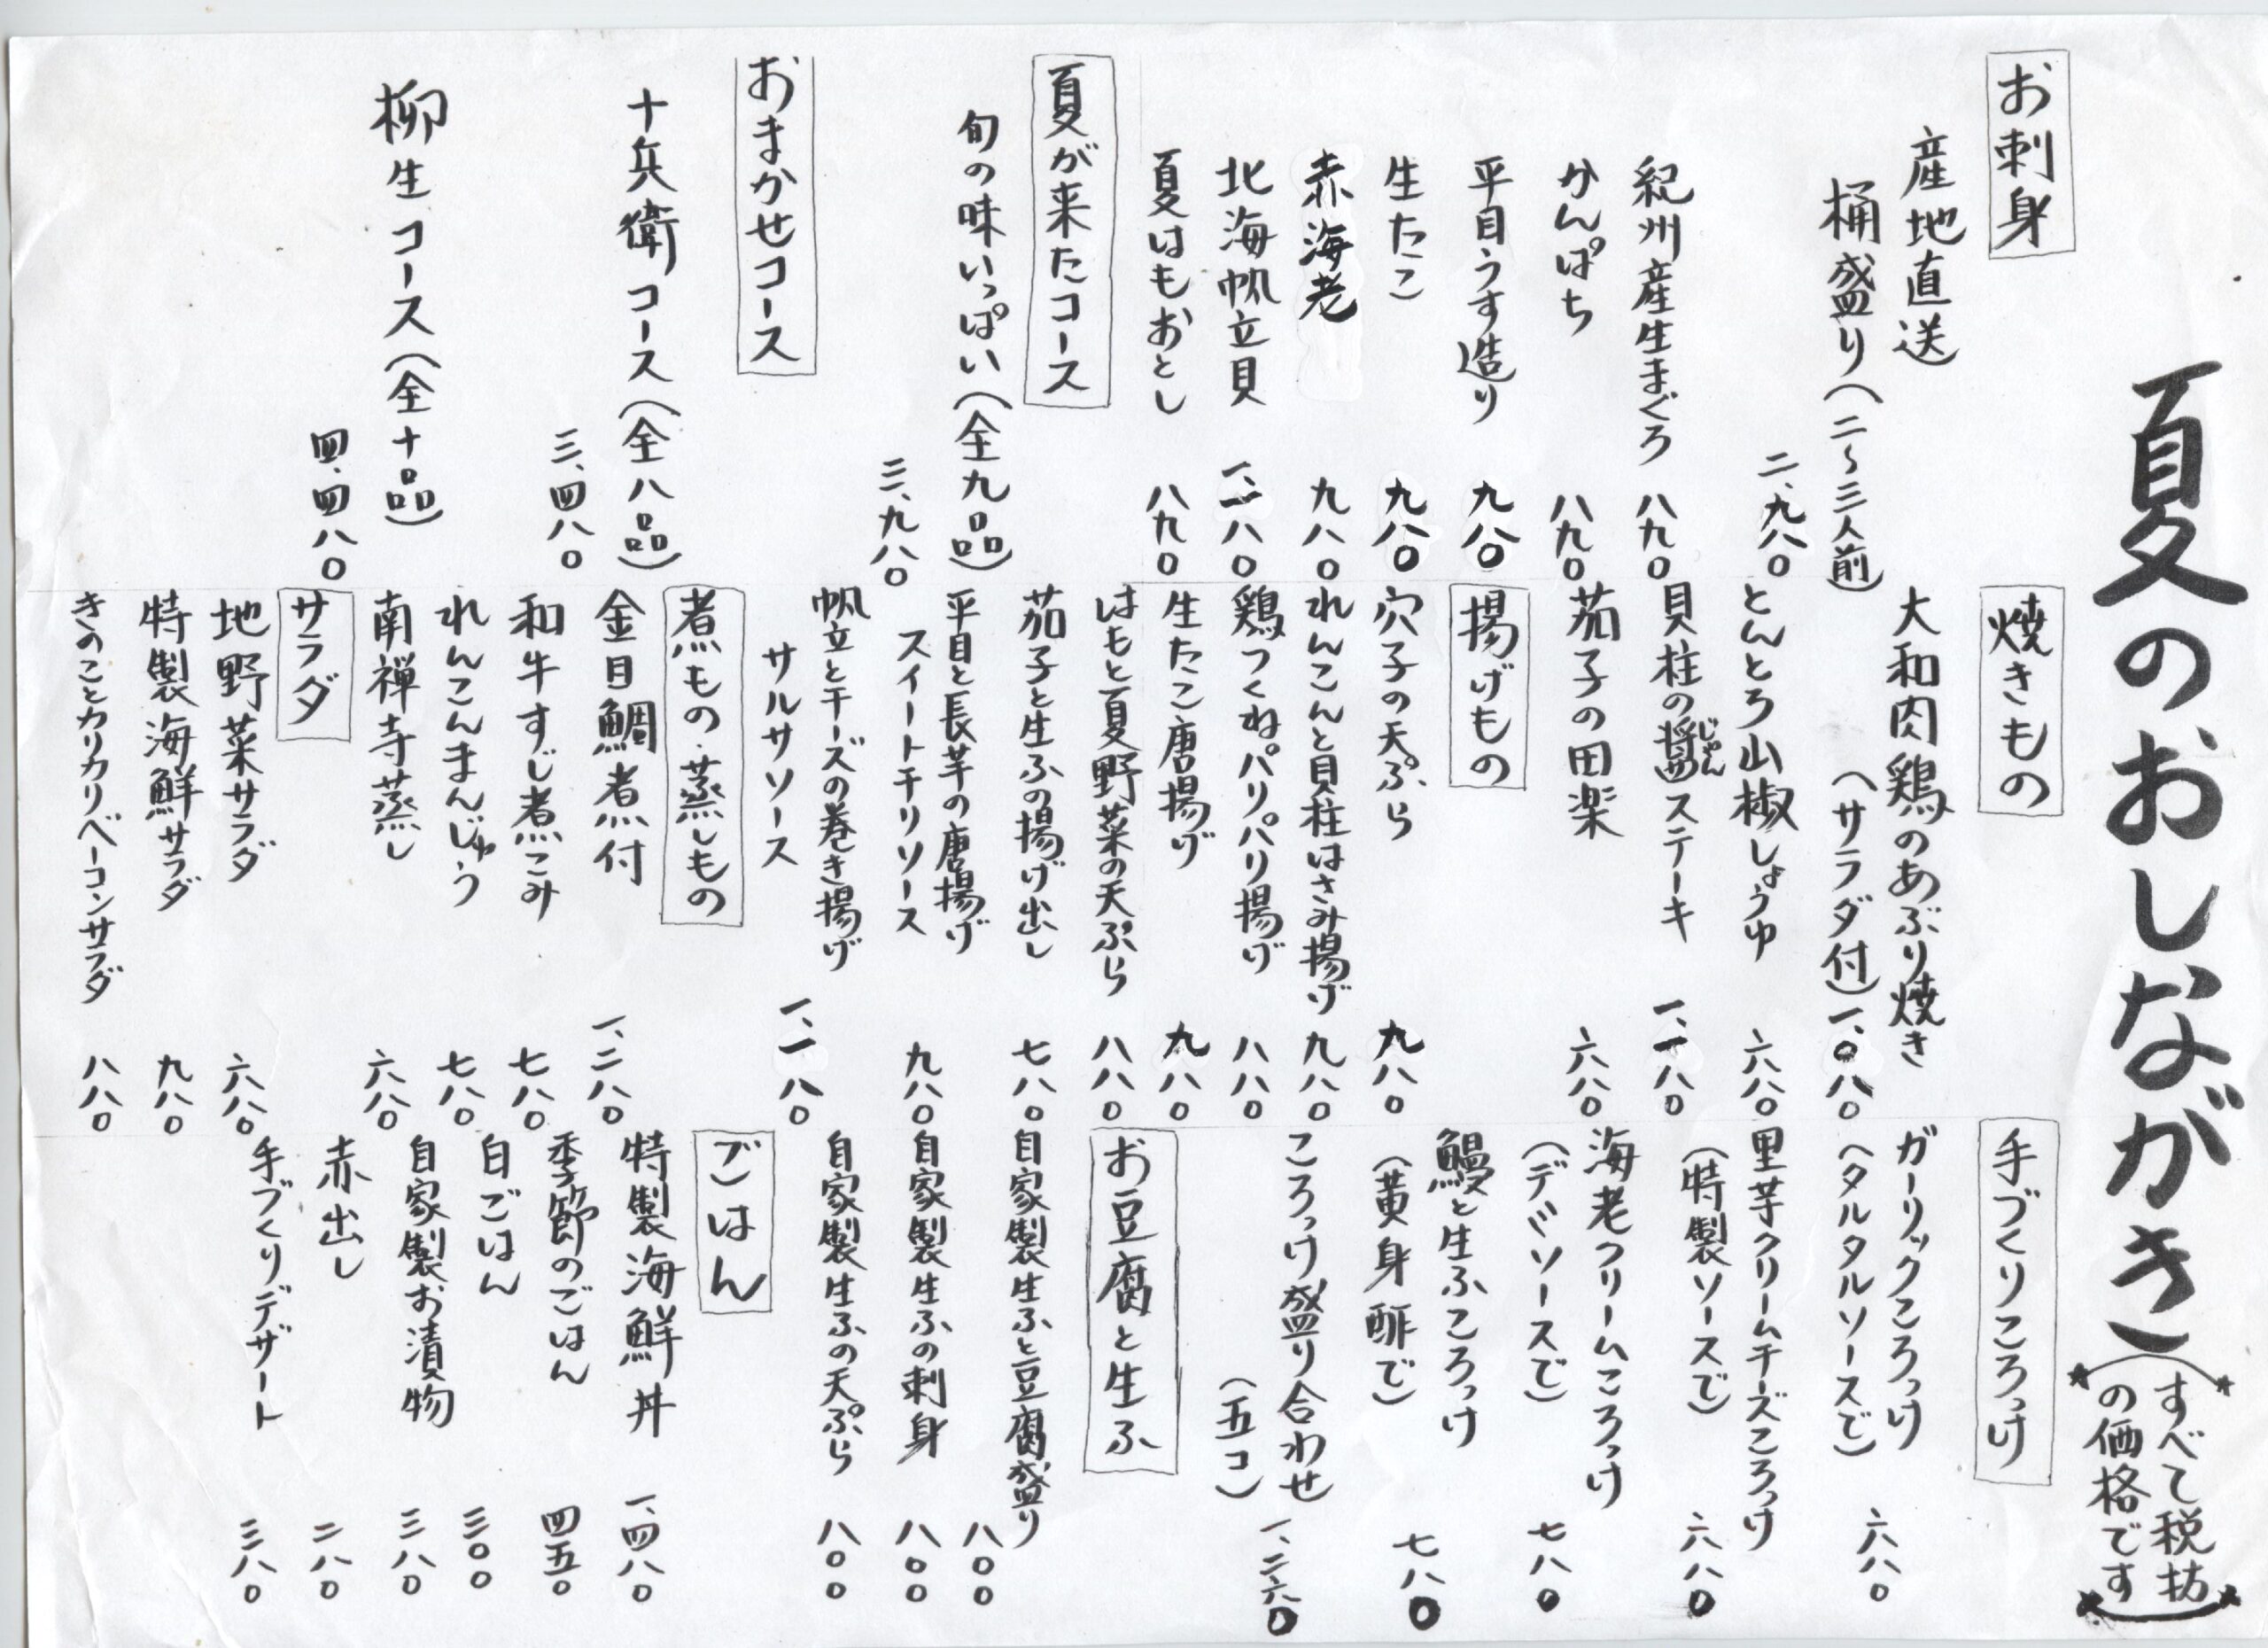 夏のおしながき
(すべて税抜
の価格です)
お刺身
産地直送
桶盛り(二〜三人前)
二、九八〇
紀州産生まぐろ 八九〇
かんぱち 八九〇
平目うす造り 九八〇
生たこ 九八〇
赤海老 九八〇
北海帆立貝 一、一八〇
夏はもおとし 八九〇
夏が来たコース
旬の味いっぱい(全九品)
三、九八〇
おまかせコース
十兵衛コース(全八品)
三、四八〇
柳生コース(全十品)
四、四八〇
焼きもの
大和肉鶏のあぶり焼き
(サラダ付)一、〇八〇
とんとろ山椒しょうゆ 六八〇
貝柱の醬じゃんステーキ 一、一八〇
茄子の田楽 六八〇
揚げもの
穴子の天ぷら 九八〇
れんこんと貝柱はさみ揚げ 九八〇
鶏つくねパリパリ揚げ 八八〇
生たこ唐揚げ 九八〇
はもと夏野菜の天ぷら 八八〇
茄子と生ふの揚げ出し 七八〇
平目と長芋の唐揚げ
スイートチリソース 九八〇
帆立とチーズの巻き揚げ
サルサソース 一、一八〇
煮もの・蒸しもの
金目鯛煮付 一、二八〇
和牛すじ煮こみ 七八〇
れんこんまんじゅう 七八〇
南禅寺蒸し 六八〇
サラダ
地野菜サラダ 六八〇
特製海鮮サラダ 九八〇
きのことカリカリベーコンサラダ 八八〇
手づくりころっけ
ガーリックころっけ
(タルタルソースで) 六八〇
里芋クリームチーズころっけ
(特製ソースで) 六八〇
海老クリームころっけ
(デミソースで) 七八〇
鰻と生ふころっけ
(黄身酢で) 七八〇
ころっけ盛り合わせ
(五コ) 一、二六〇
お豆腐と生ふ
自家製生ふと豆腐盛り
八〇〇
自家製生ふの刺身 八〇〇
自家製生ふの天ぷら 八〇〇
ごはん
特製海鮮丼 一、四八〇
季節のごはん 四五〇
白ごはん 三〇〇
自家製お漬物 三八〇
赤出し 二八〇
手づくりデザート 三八〇